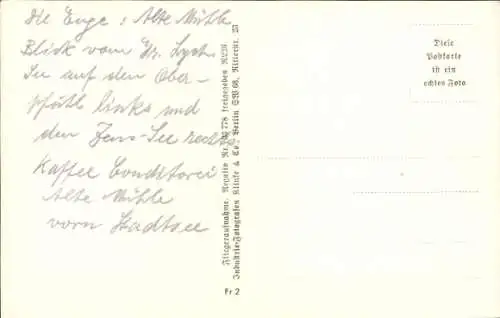 die Enge: Alte Mühle
Blick vom Gr. Lych.
See auf den Ober-
pfuhl links und
den Zens-See rechts
Kaffee Conditorei
Alte Mühle
vorn Stadtsee
Fliegeraufnahme. Negativ Nr. 778 freigegeben RLM
Industrie-Fotografen Klinke & Co., Berlin SW 68, Ritterstr. 51
Fr 2
Diese
Postkarte
ist ein
echtes Foto